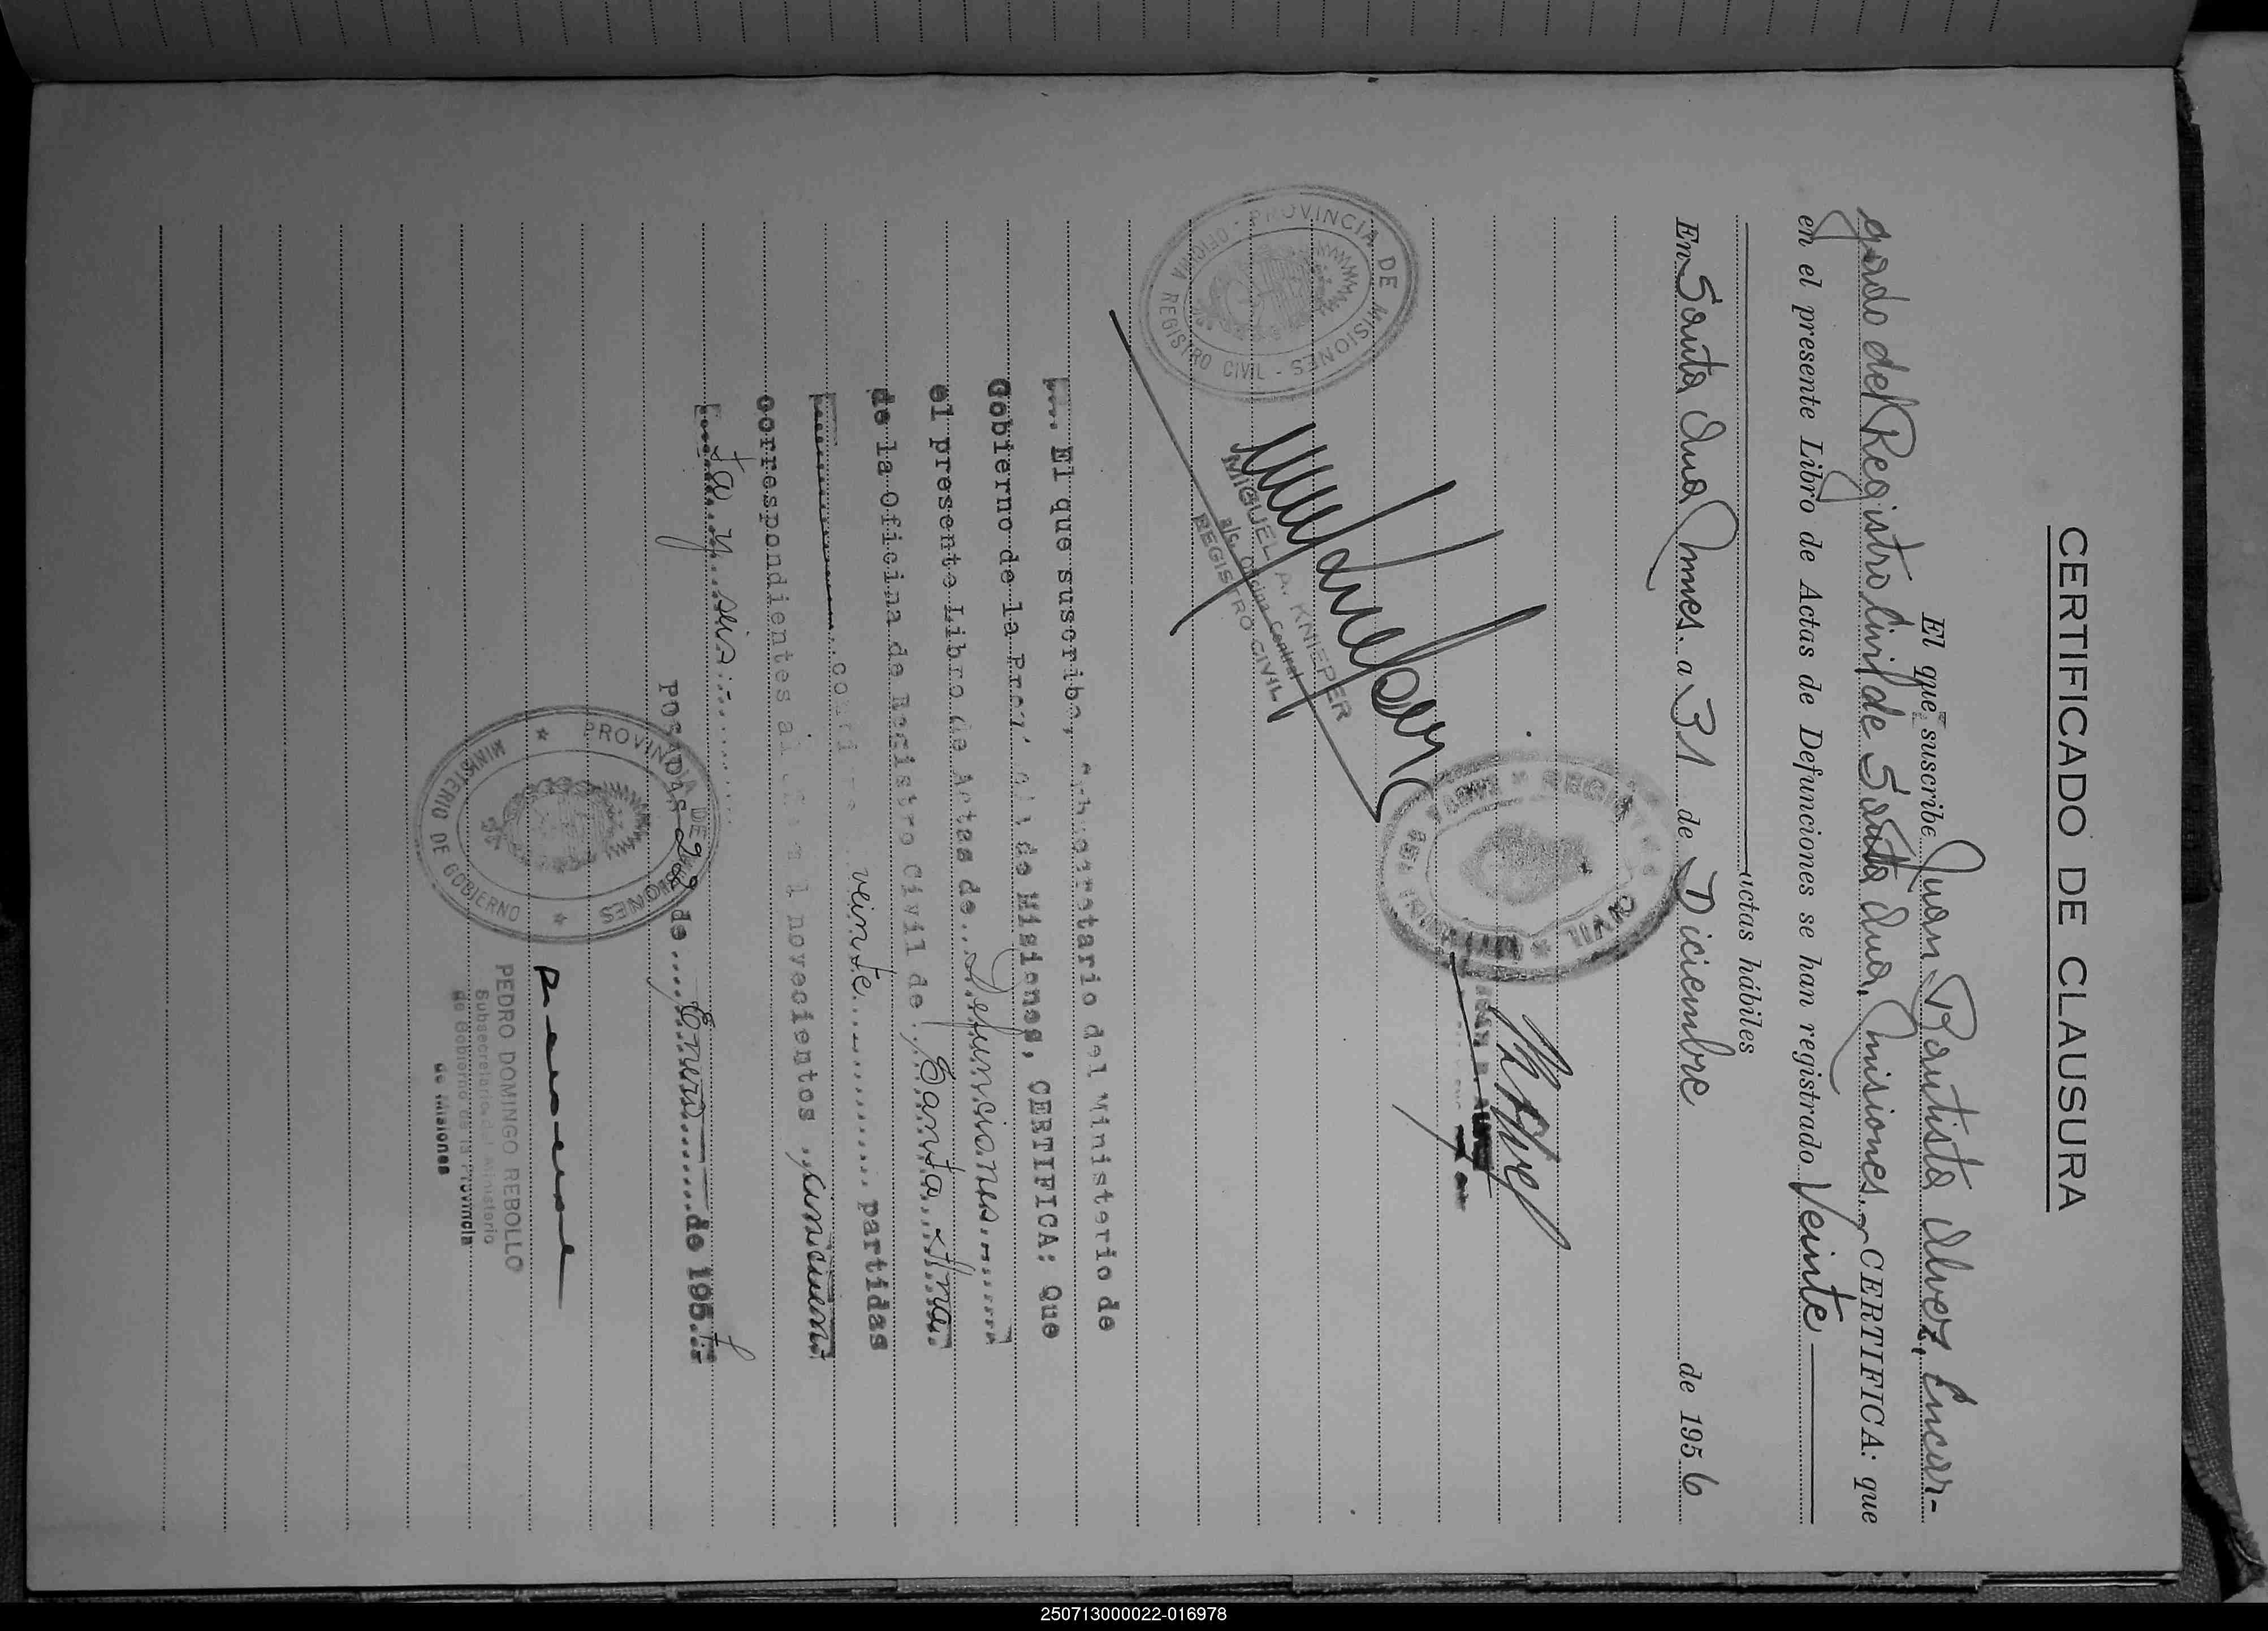 CERTIFICADO DE CLAUSURA
El que suscribe Juan Bautista Alvez, Encar-
gado del Registro Civil de Santa Ana, Misiones. CERTIFICA: que
en el presente Libro de Actas de Defunciones se han registrado Veinte
actas hábiles
En Santa Ana Mnes. a 31 de Diciembre de 1956
REGISTRO CIVIL
PROVINCIA DE MISIONES - OFICINA REGISTRO CIVIL -
MIGUEL A. KNIEPER
a/c. Oficina Central
REGISTRO CIVIL
.... El que suscribe, Subsecretario del Ministerio de
Gobierno de la Prov. de Misiones, CERTIFICA: Que
el presente Libro de Actas de... Defunciones........
de la Oficina de Registro Civil de... Santa Ana.
.... contiene .. veinte............. partidas
correspondientes al mil novecientos .. cincuen
ta y seis............
POSADAS 22 de .... Enero ........ de 195.7.-
PROVINCIA DE MISIONES
MINISTERIO DE GOBIERNO
PEDRO DOMINGO REBOLLO
Subsecretario del Ministerio
de Gobierno de la Provincia
de Misiones
250713000022-016978